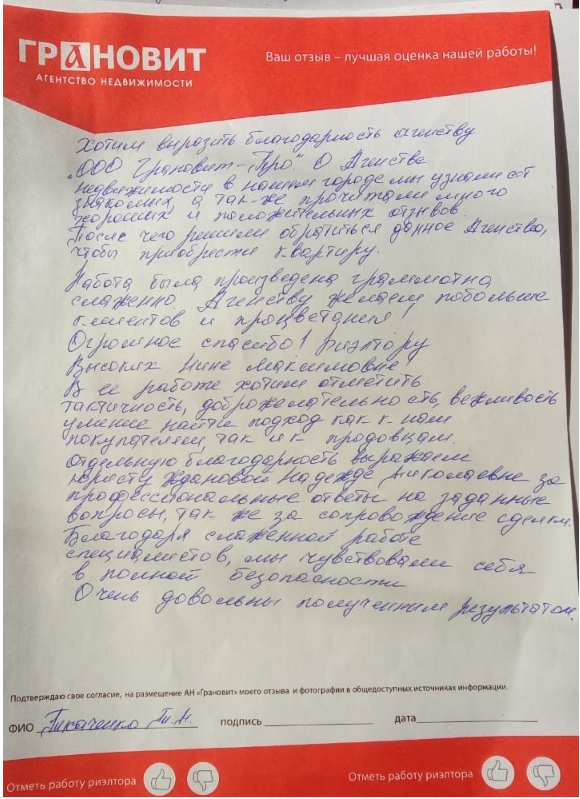 ГРАНОВИТ
АГЕНТСТВО НЕДВИЖИМОСТИ
Ваш отзыв – лучшая оценка нашей работы!
Хотим выразить благодарность агенству
"ООО Грановит-Про". О Агенстве
недвижимости в нашем городе мы узнали от
знакомых, а так же прочитали много
хороших и положительных отзывов.
После чего решили обратиться данное Агенство,
чтобы приобрести квартиру.
Работа была произведена грамматно,
слаженно. Агенству желаем побольше
клиентов и процветания!
Огромное спасибо! риэлтору
Высоких Нине Максимовне!
В ее работе хотим отметить
тактичность, доброжелательность, вежливость
умение найти подход как к нам
покупателям, так и к продовцам.
Отдельную благодарность выражаем
юристу Ждановой Надежде Николаевне за
профессиональные ответы на заданные
вопросы, так же за сопровождение сделки.
Благодаря слаженной работе
специалистов, мы чувствовали себя
в полной безопасности
Очень довольны полученным результатом.
Подтверждаю свое согласие, на размещение АН «Грановит» моего отзыва и фотографии в общедоступных источниках информации.
ФИО подпись дата
Отметь работу риэлтора
Отметь работу риэлтора